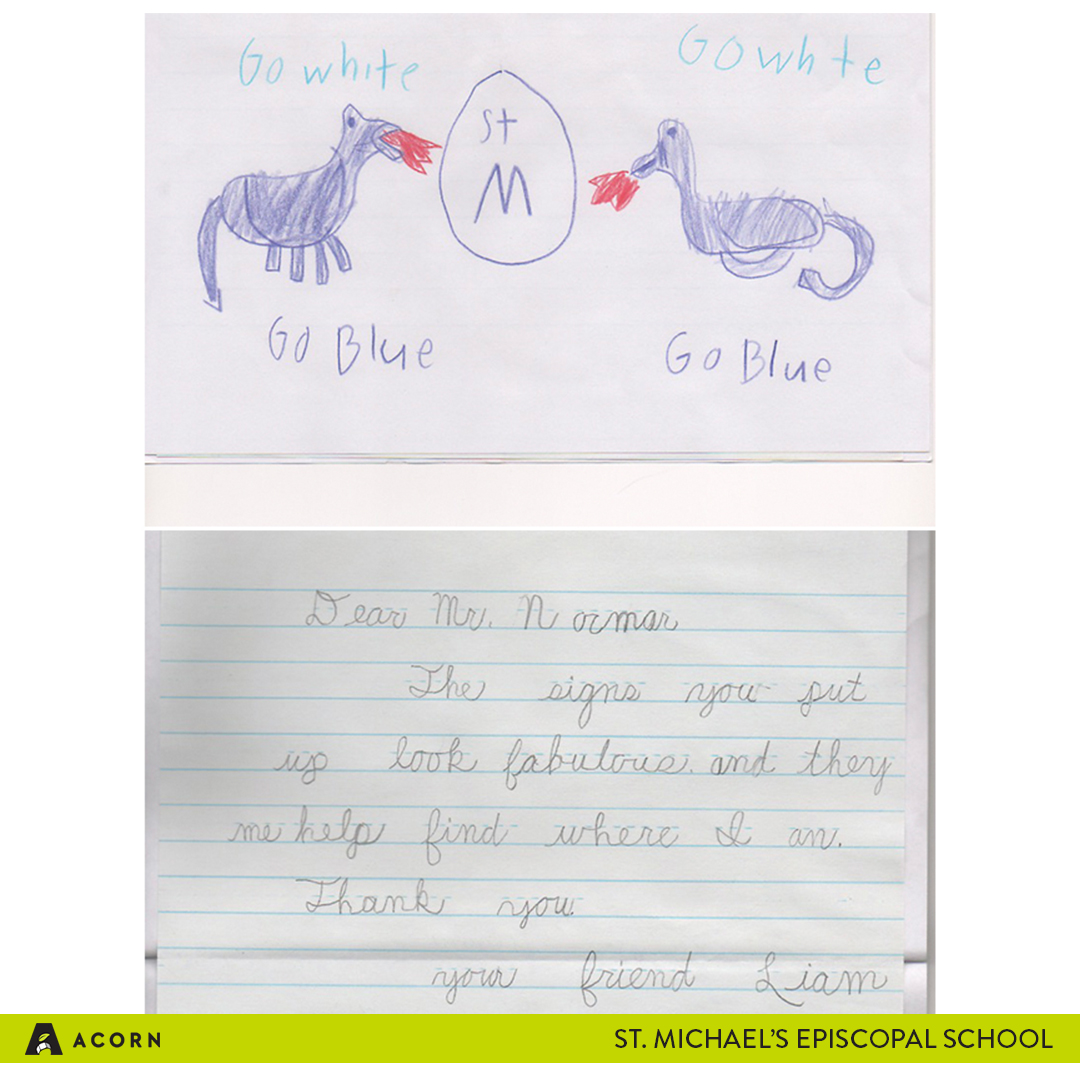 Go white
Go wh te
St
M
Go Blue
Go Blue
Dear Mr. Normar
The signs you put
up look fabulous. and they
me help find where I an.
Thank you.
your friend Liam
ACORN
ST. MICHAEL'S EPISCOPAL SCHOOL